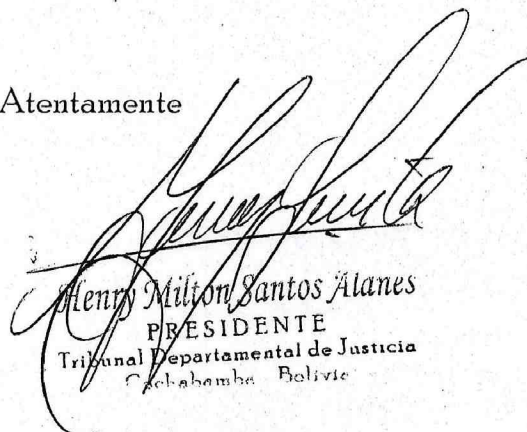 Atentamente
Henry Milton Santos Alanes
PRESIDENTE
Tribunal Departamental de Justicia
Cochabamba Bolivia